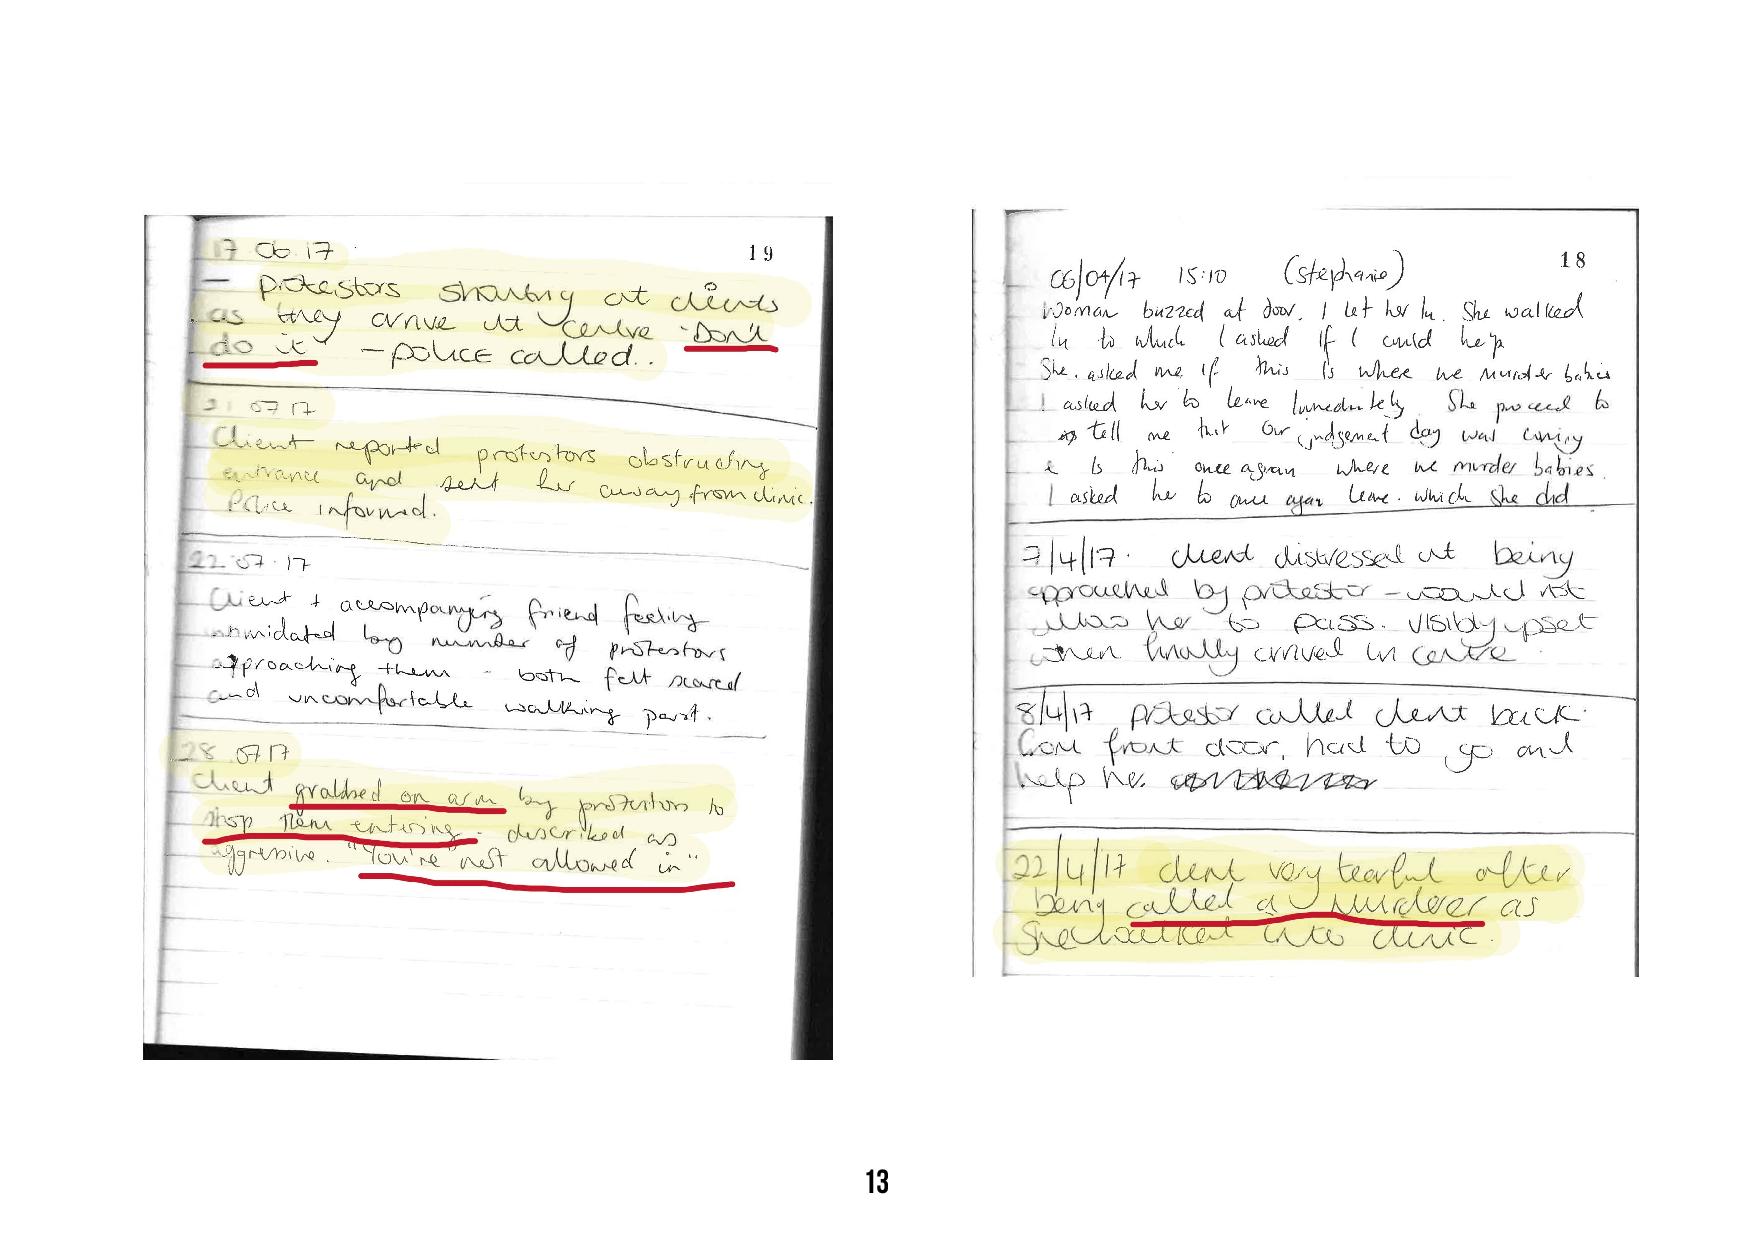 17 06 17
19
– protestors shouting at clients
as they arrive at centre "Don't
do it" – police called..
21 07 17
Client reported protestors obstructing
entrance and sent her away from clinic.
Police informed.
22.07.17
Client + accompanying friend feeling
intimidated by number of protestors
approaching them - both felt scared
and uncomfortable walking past.
28.07 17
Client grabbed on arm by protestors to
stop them entering - described as
aggressive. "You're not allowed in"
18
06/04/17 15:10 (Stephanie)
Woman buzzed at door. I let her in. She walked
in to which I asked if I could help
She asked me if this is where we murder babies
I asked her to leave immediately. She proceed to
tell me that our judgement day was coming
& is this once again where we murder babies.
I asked her to once again leave. which she did
7/4/17. client distressed at being
approached by protestor – would not
allow her to pass. visibly upset
when finally arrived in centre
8/4/17 protestor called client back
from front door, had to go and
help her.
22/4/17 client very tearful after
being called a murderer as
she walked into clinic.
13